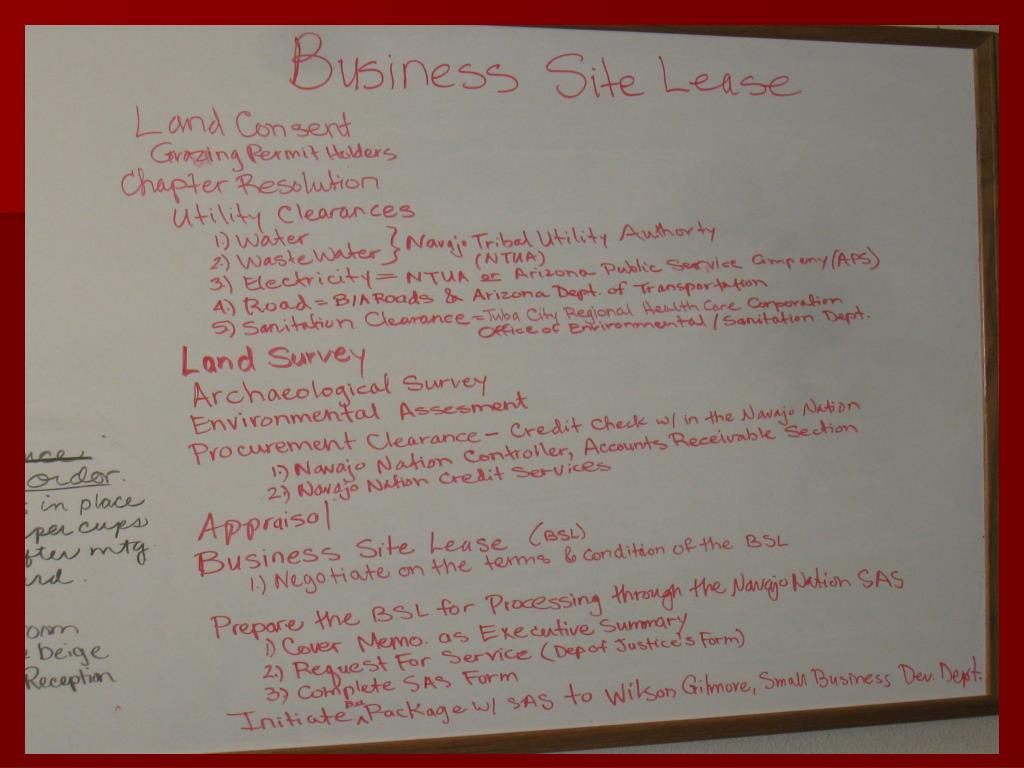 Business Site Lease
Land Consent
Grazing Permit Holders
Chapter Resolution
Utility Clearances
1.) Water
2.) WasteWater } Navajo Tribal Utility Authorty
(NTUA)
3) Electricity = NTUA or Arizona Public Service Company (APS)
4.) Road = BIA Roads & Arizona Dept. of Transportation
5) Sanitation Clearance = Tuba City Regional Health Care Corporation
Office of Environmental / Sanitation Dept.
Land Survey
Archaeological Survey
Environmental Assesment
Procurement Clearance - Credit Check w/ in the Navajo Nation
1.) Navajo Nation Controller, Accounts Receivable Section
2.) Navajo Nation Credit Services
Appraisal
Business Site Lease (BSL)
1.) Negotiate on the terms & condition of the BSL
Prepare the BSL for Processing through the Navajo Nation SAS
1) Cover Memo. as Executive Summary
2.) Request For Service (Dep of Justice's Form)
3) Complete SAS Form
Initiate Package w/ SAS to Wilson Gilmore, Small Business Dev. Dept.
order.
in place
per cups
fter mtg
rd.
beige
Reception